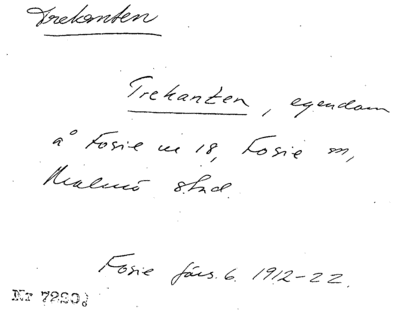 Trekanten
Trekanten, egendom
å Fosie nr 18, Fosie sn,
Malmö stad.
Fosie förs. b. 1912-22.
Nr 7280